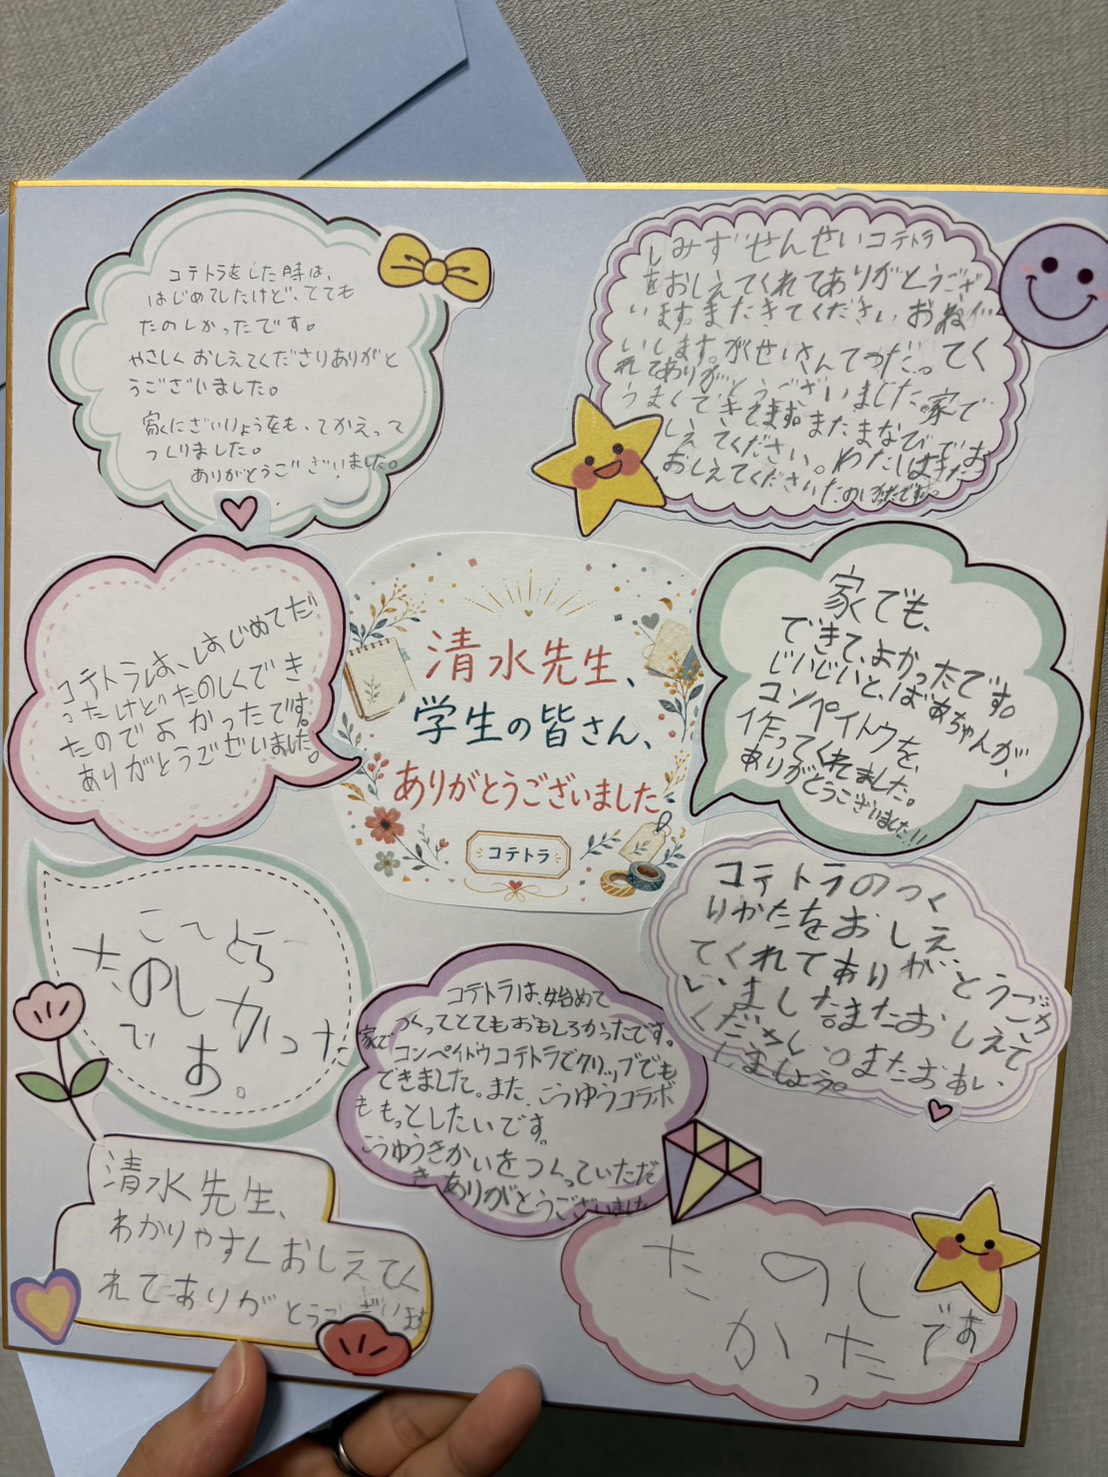 コテトラをした時は、
はじめてでしたけど、とても
たのしかったです。
やさしくおしえてくださりありがと
うございました。
家にざいりょうをも、てかえって
つくりました。
ありがとうございました。
しみずせんせいコテトラ
をおしえてくれてありがとうござ
います。またきてください。おねが
いします。がくせいさんてつだってく
れてありがとうございました。家で
うまくできてます。またまなびでお
しえてください。わたしはまたお
おしえてくださいたのしかったです。
コテトラは、はじめてだ
ったけどたのしくでき
たのでよかったです。
ありがとうございました。
清水先生、
学生の皆さん、
ありがとうございました
コテトラ
家でも、
できて、よかったです。
じいじいと、ばあちゃんが、
コンペイトウを、
作ってくれました。
ありがとうございました!!
こてとら
たのしかった
です。
コテトラは、始めて
つくってとてもおもしろかったです。
家でコンペイトウコテトラでクリップでも
できました。また、こうゆうコラボ
ももっとしたいです。
こうゆうきかいをつくっていただ
きありがとうございました
コテトラのつく
りかたをおしえ
てくれてありがとうござ
いましたまたおしえて
ください。またおあい
しましょう。
清水先生、
わかりやすくおしえてく
れてありがとうございます
たのし
かったです